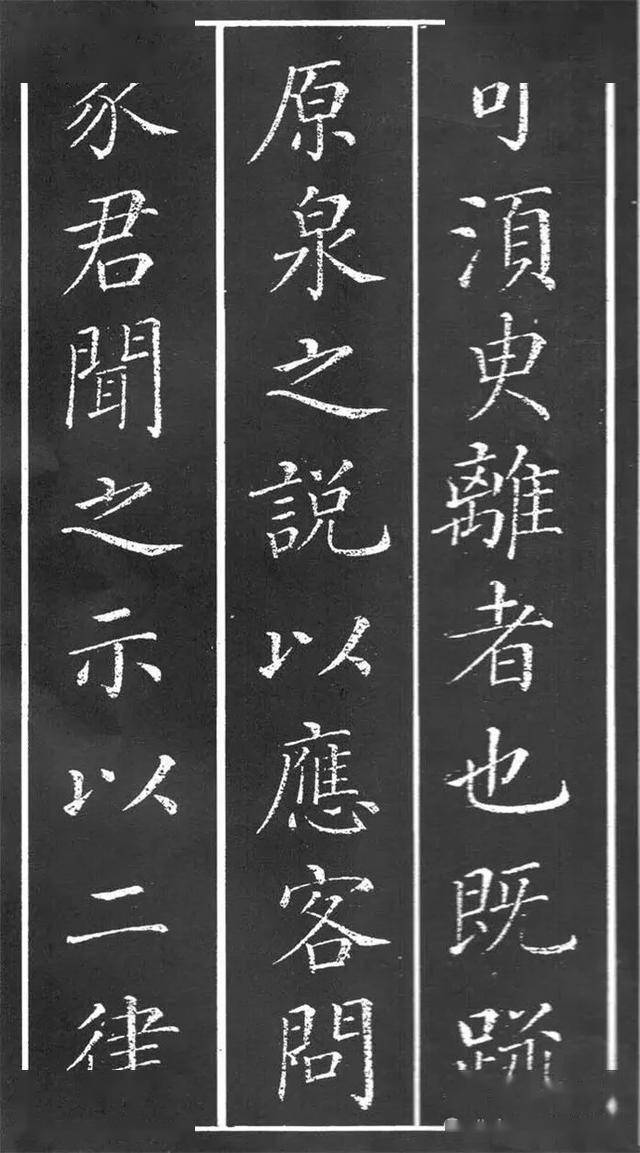 可須臾離者也既疏
原泉之說以應客問
君聞之示以二律